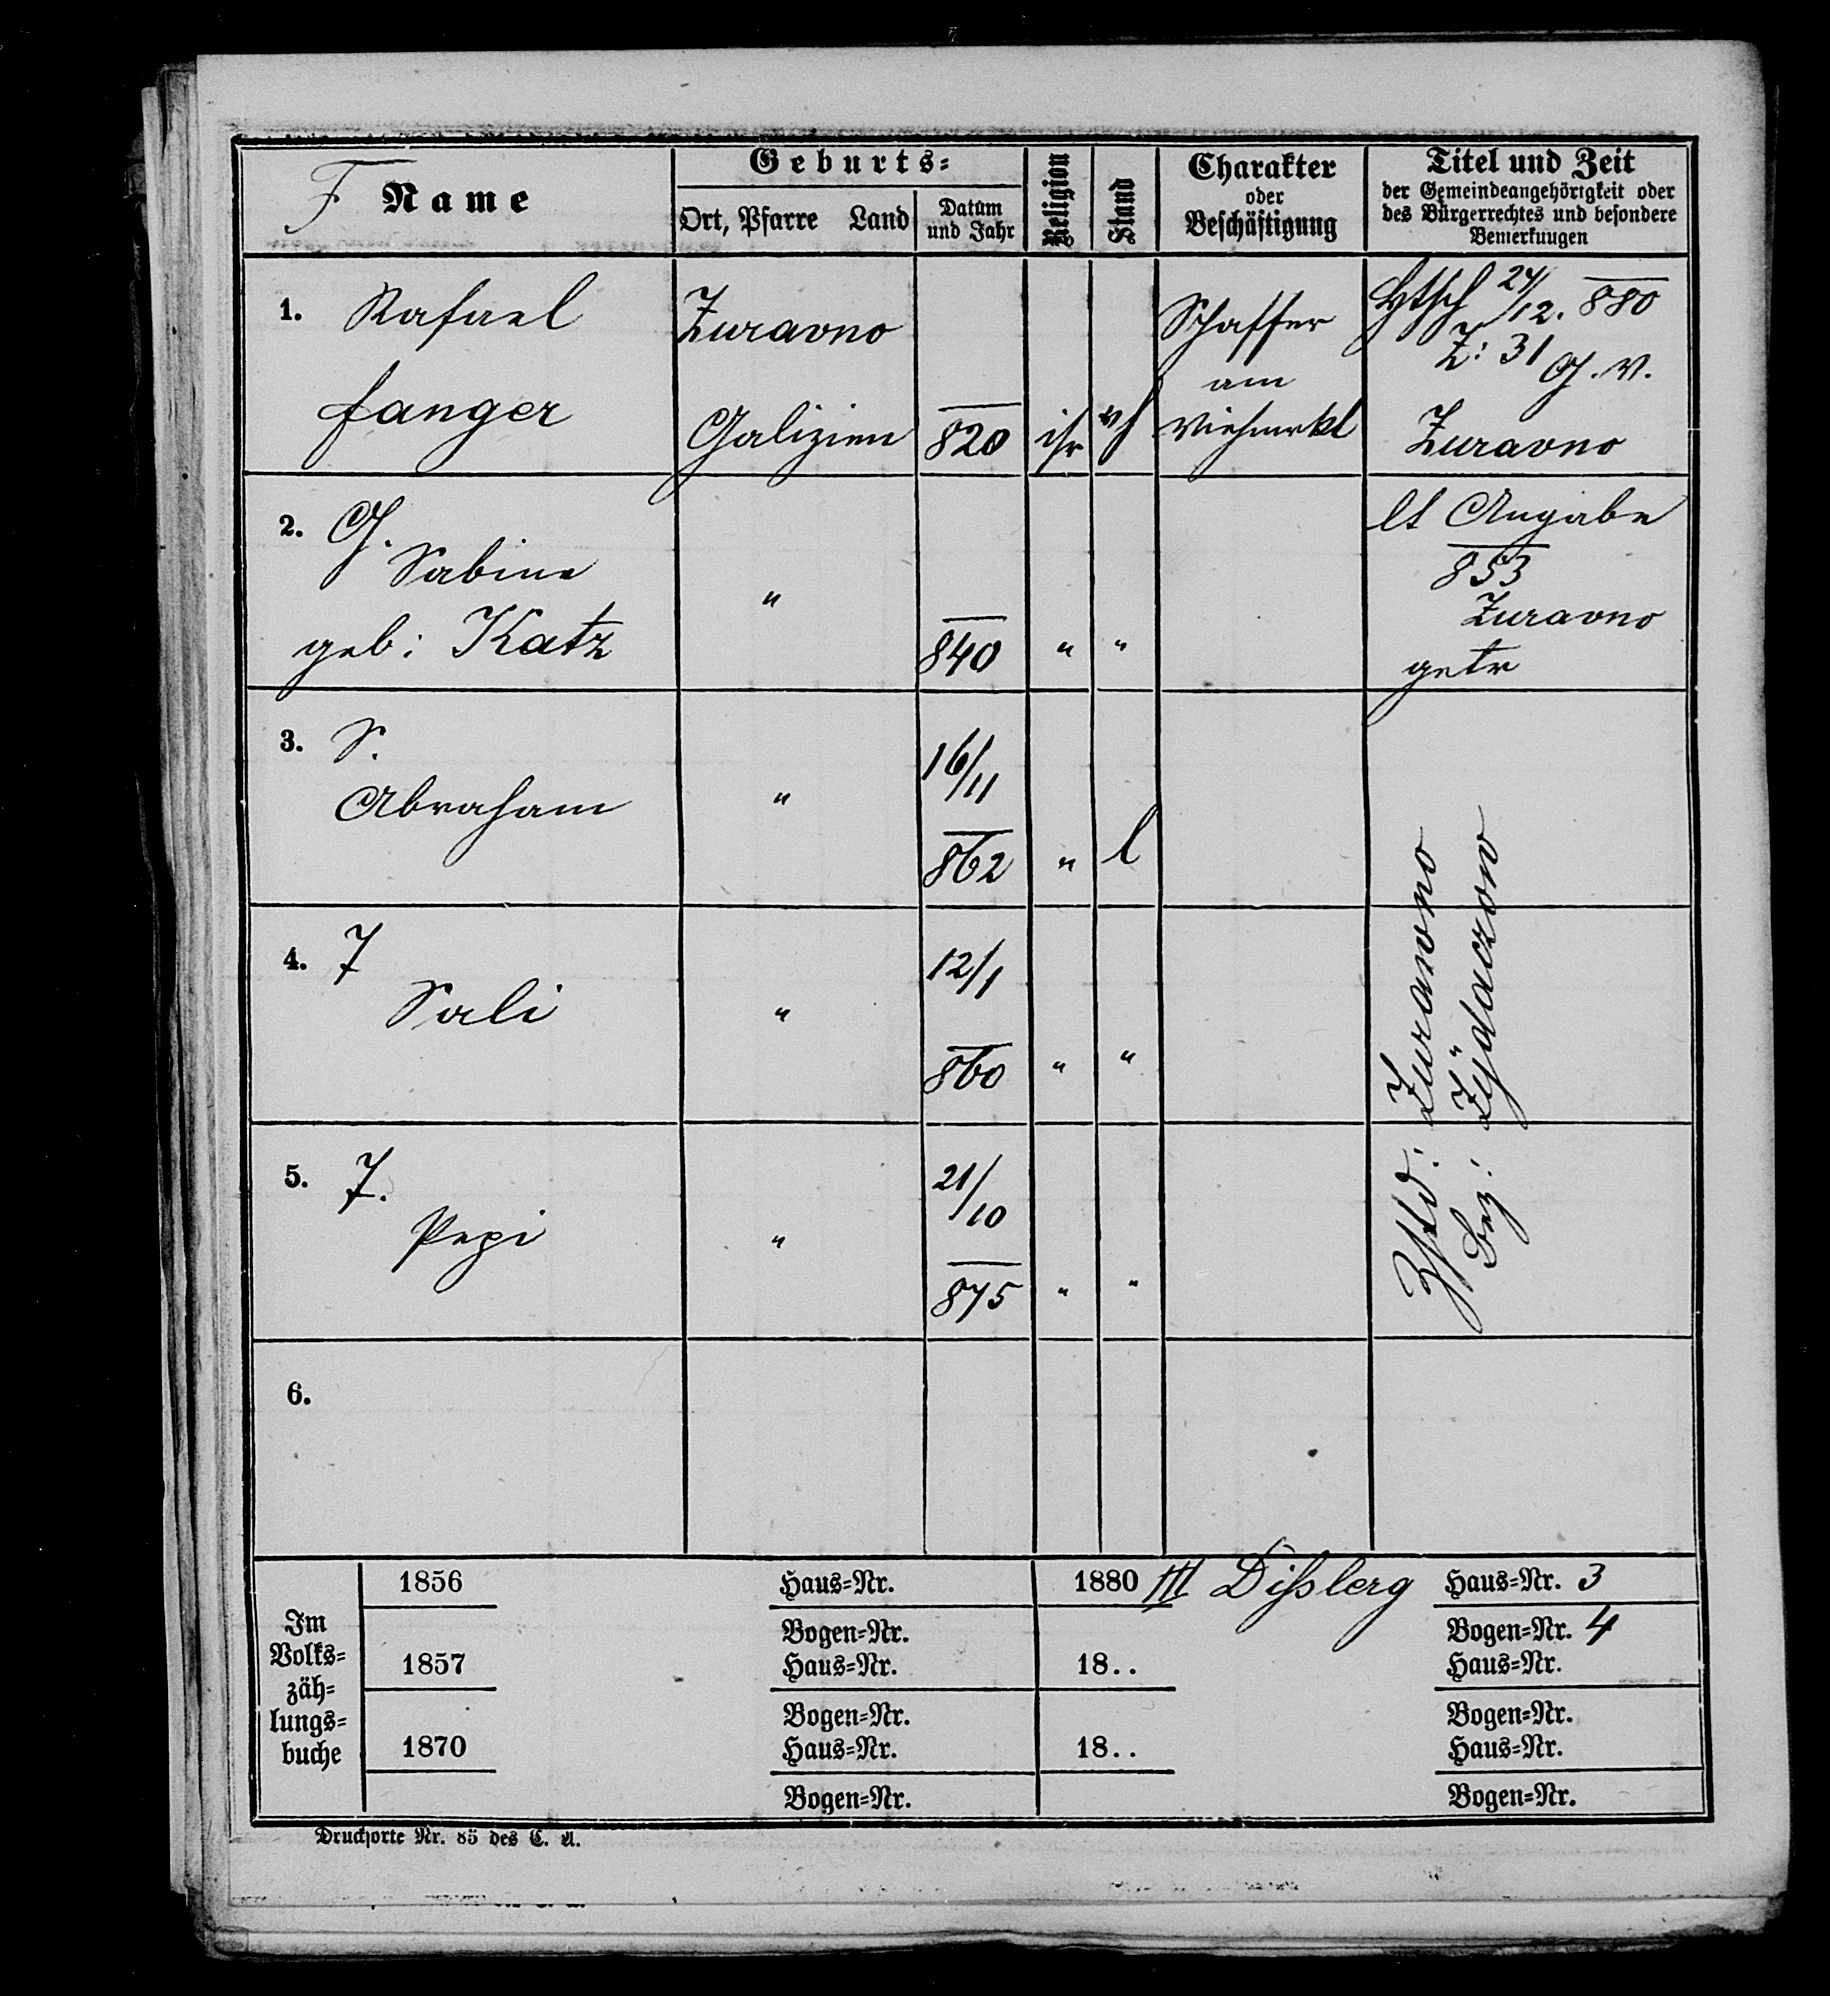 F
Name
Geburts=
Ort, Pfarre Land
Datum
und Jahr
Religion
Stand
Charakter
oder
Beschäftigung
Titel und Zeit
der Gemeindeangehörigkeit oder
des Bürgerrechtes und besondere
Bemerkungen
1. Rafael
fanger
Zuravno
Galizien
820
isr
vh
Schaffer
am
Viehmrkt
24/12. 880
Z: 31 G. V.
Zuravno
2. G.
Sabine
geb: Katz
"
840
"
"
lt Angabe
853
Zuravno
getr
3. S.
Abraham
"
16/11
862
"
l
4. T
Sali
"
12/1
860
"
"
5. T.
Pepi
"
21/10
875
"
"
Zstd: Zurawno
Bez: Zydaczow
6.
Im
Volks=
zäh=
lungs=
buche
1856
Haus=Nr.
Bogen=Nr.
1857
Haus=Nr.
Bogen=Nr.
1870
Haus=Nr.
Bogen=Nr.
1880 III Dißlerg Haus=Nr. 3
Bogen=Nr. 4
18..
Haus=Nr.
Bogen=Nr.
18..
Haus=Nr.
Bogen=Nr.
Drucksorte Nr. 85 des C. A.